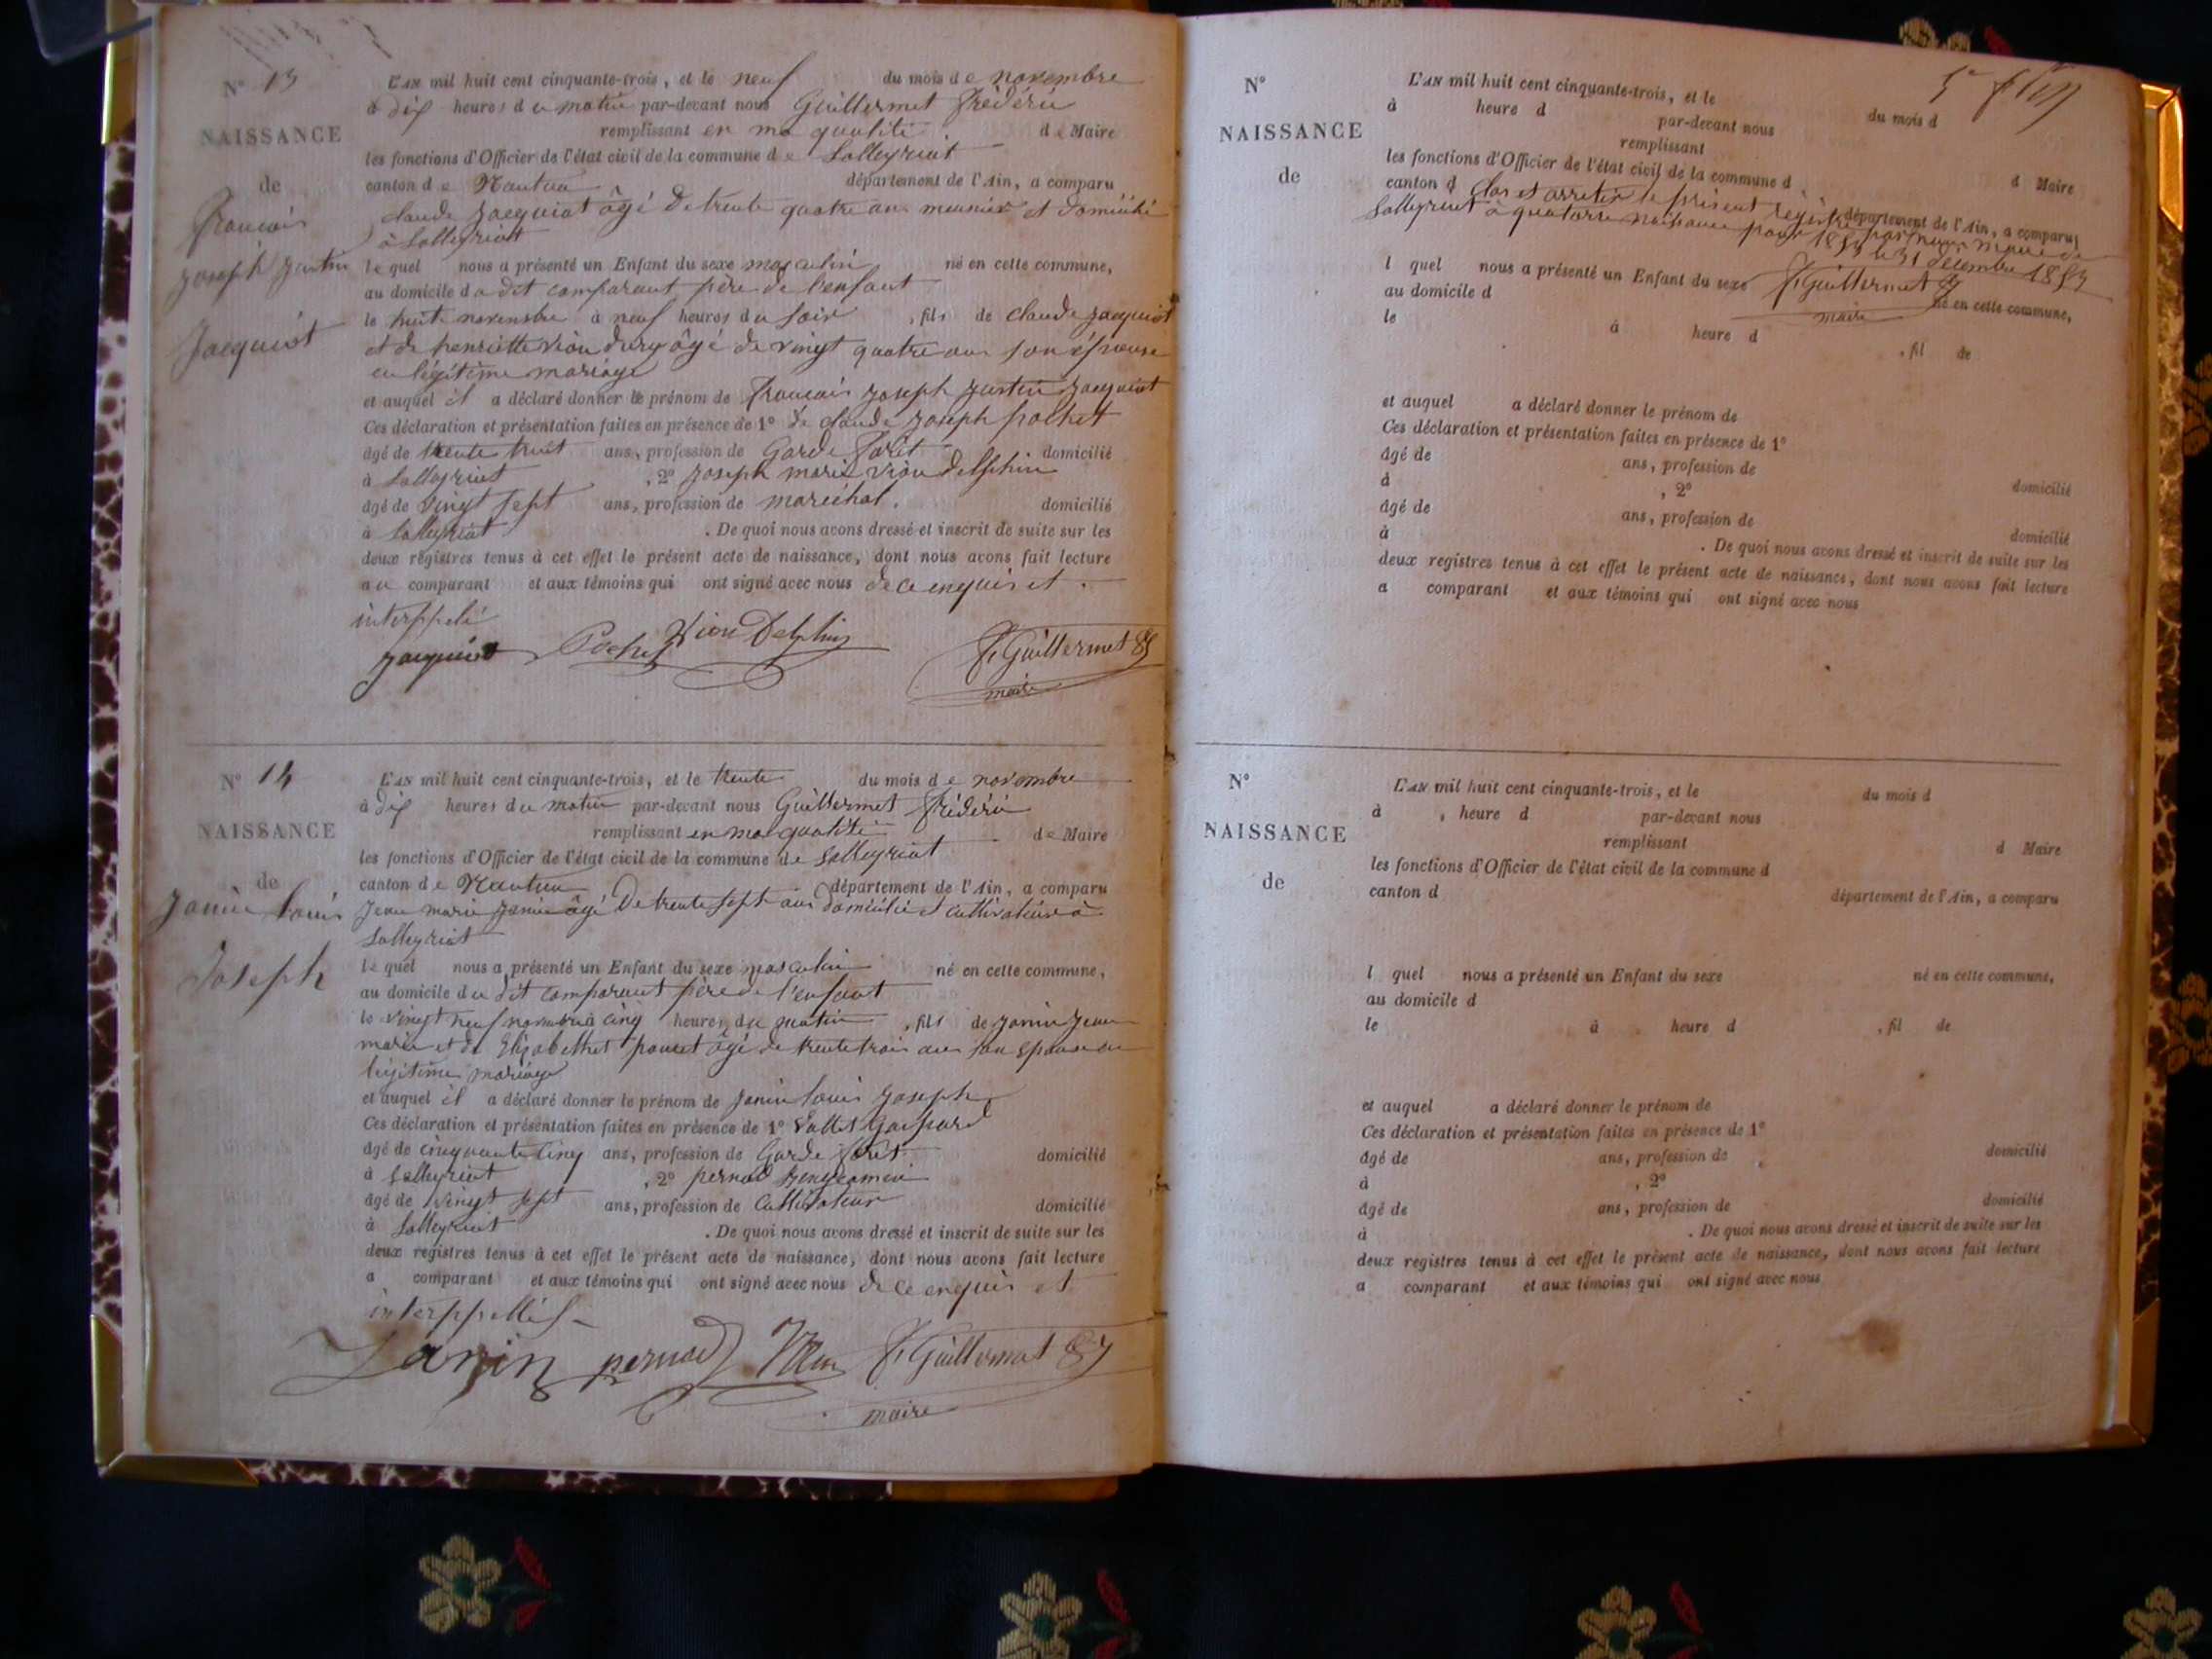 N° 13
L'AN mil huit cent cinquante-trois, et le neuf du mois de novembre
à dix heures du matin par-devant nous Guillermet frédéric
NAISSANCE
remplissant en ma qualité de Maire
les fonctions d'Officier de l'état civil de la commune de Lalleyriat
de
canton de Nantua département de l'Ain, a comparu
claude Jacquiot âgé de trente quatre ans meunier et domicilié
à Lalleyriat
francois
joseph justin
Jacquiot
lequel nous a présenté un Enfant du sexe masculin né en cette commune,
au domicile du dit comparant père de l'enfant
le huit novembre à neuf heures du soir, fils de claude Jacquiot
et de henriette viou dury âgé de vingt quatre ans son épouse
en legitime mariage
et auquel il a déclaré donner le prénom de francois joseph justin jacquiot
Ces déclaration et présentation faites en présence de 1° de claude joseph pochet
âgé de trente huit ans, profession de Garde foret domicilié
à Lalleyriat, 2° joseph marie viou delphin
âgé de vingt sept ans, profession de maréchal. domicilié
à Lalleyriat. De quoi nous avons dressé et inscrit de suite sur les
deux registres tenus à cet effet le présent acte de naissance, dont nous avons fait lecture
au comparant et aux témoins qui ont signé avec nous de ce enquis et
interppelé
jacquiot Pochet Viou Delphin F. Guillermet
maire
N° 14
L'AN mil huit cent cinquante-trois, et le trente du mois de novembre
à dix heures du matin par-devant nous Guillermet frédéric
NAISSANCE
remplissant en ma qualité de Maire
les fonctions d'Officier de l'état civil de la commune de Lalleyriat
de
canton de Nantua département de l'Ain, a comparu
Janin louis
Joseph
Jean marie Janin âgé de trente sept ans domicilié et cultivateur à
Lalleyriat
lequel nous a présenté un Enfant du sexe masculin né en cette commune,
au domicile du dit comparant père de l'enfant
le vingt neuf novembre à cinq heures du matin, fils de Janin Jean
marie et de Elizabethet poncet âgé de trente trois ans son epouse en
legitime mariage
et auquel il a déclaré donner le prénom de Janin louis joseph
Ces déclaration et présentation faites en présence de 1° Vallet Gaspard
âgé de cinquante cinq ans, profession de Garde foret domicilié
à Lalleyriat, 2° pernod
âgé de vingt sept ans, profession de Cultivateur domicilié
à Lalleyriat. De quoi nous avons dressé et inscrit de suite sur les
deux registres tenus à cet effet le présent acte de naissance, dont nous avons fait lecture
a comparant et aux témoins qui ont signé avec nous de ce enquis et
interppellés
Janin pernod F. Guillermet
maire
N°
L'AN mil huit cent cinquante-trois, et le du mois d
à heure d par-devant nous
NAISSANCE
remplissant d Maire
les fonctions d'Officier de l'état civil de la commune d
de
canton d département de l'Ain, a comparu
Clos et arreter le présent registre par nous maire de
Lalleyriat à quatorze naissance pour 1853 le 31 decembre 1853
F. Guillermet
maire
l quel nous a présenté un Enfant du sexe né en cette commune,
au domicile d
le à heure d, fil de
et auquel a déclaré donner le prénom de
Ces déclaration et présentation faites en présence de 1°
âgé de ans, profession de domicilié
à, 2°
âgé de ans, profession de domicilié
à. De quoi nous avons dressé et inscrit de suite sur les
deux registres tenus à cet effet le présent acte de naissance, dont nous avons fait lecture
a comparant et aux témoins qui ont signé avec nous
N°
L'AN mil huit cent cinquante-trois, et le du mois d
à, heure d par-devant nous
NAISSANCE
remplissant d Maire
les fonctions d'Officier de l'état civil de la commune d
de
canton d département de l'Ain, a comparu
l quel nous a présenté un Enfant du sexe né en cette commune,
au domicile d
le à heure d, fil de
et auquel a déclaré donner le prénom de
Ces déclaration et présentation faites en présence de 1°
âgé de ans, profession de domicilié
à, 2°
âgé de ans, profession de domicilié
à. De quoi nous avons dressé et inscrit de suite sur les
deux registres tenus à cet effet le présent acte de naissance, dont nous avons fait lecture
a comparant et aux témoins qui ont signé avec nous